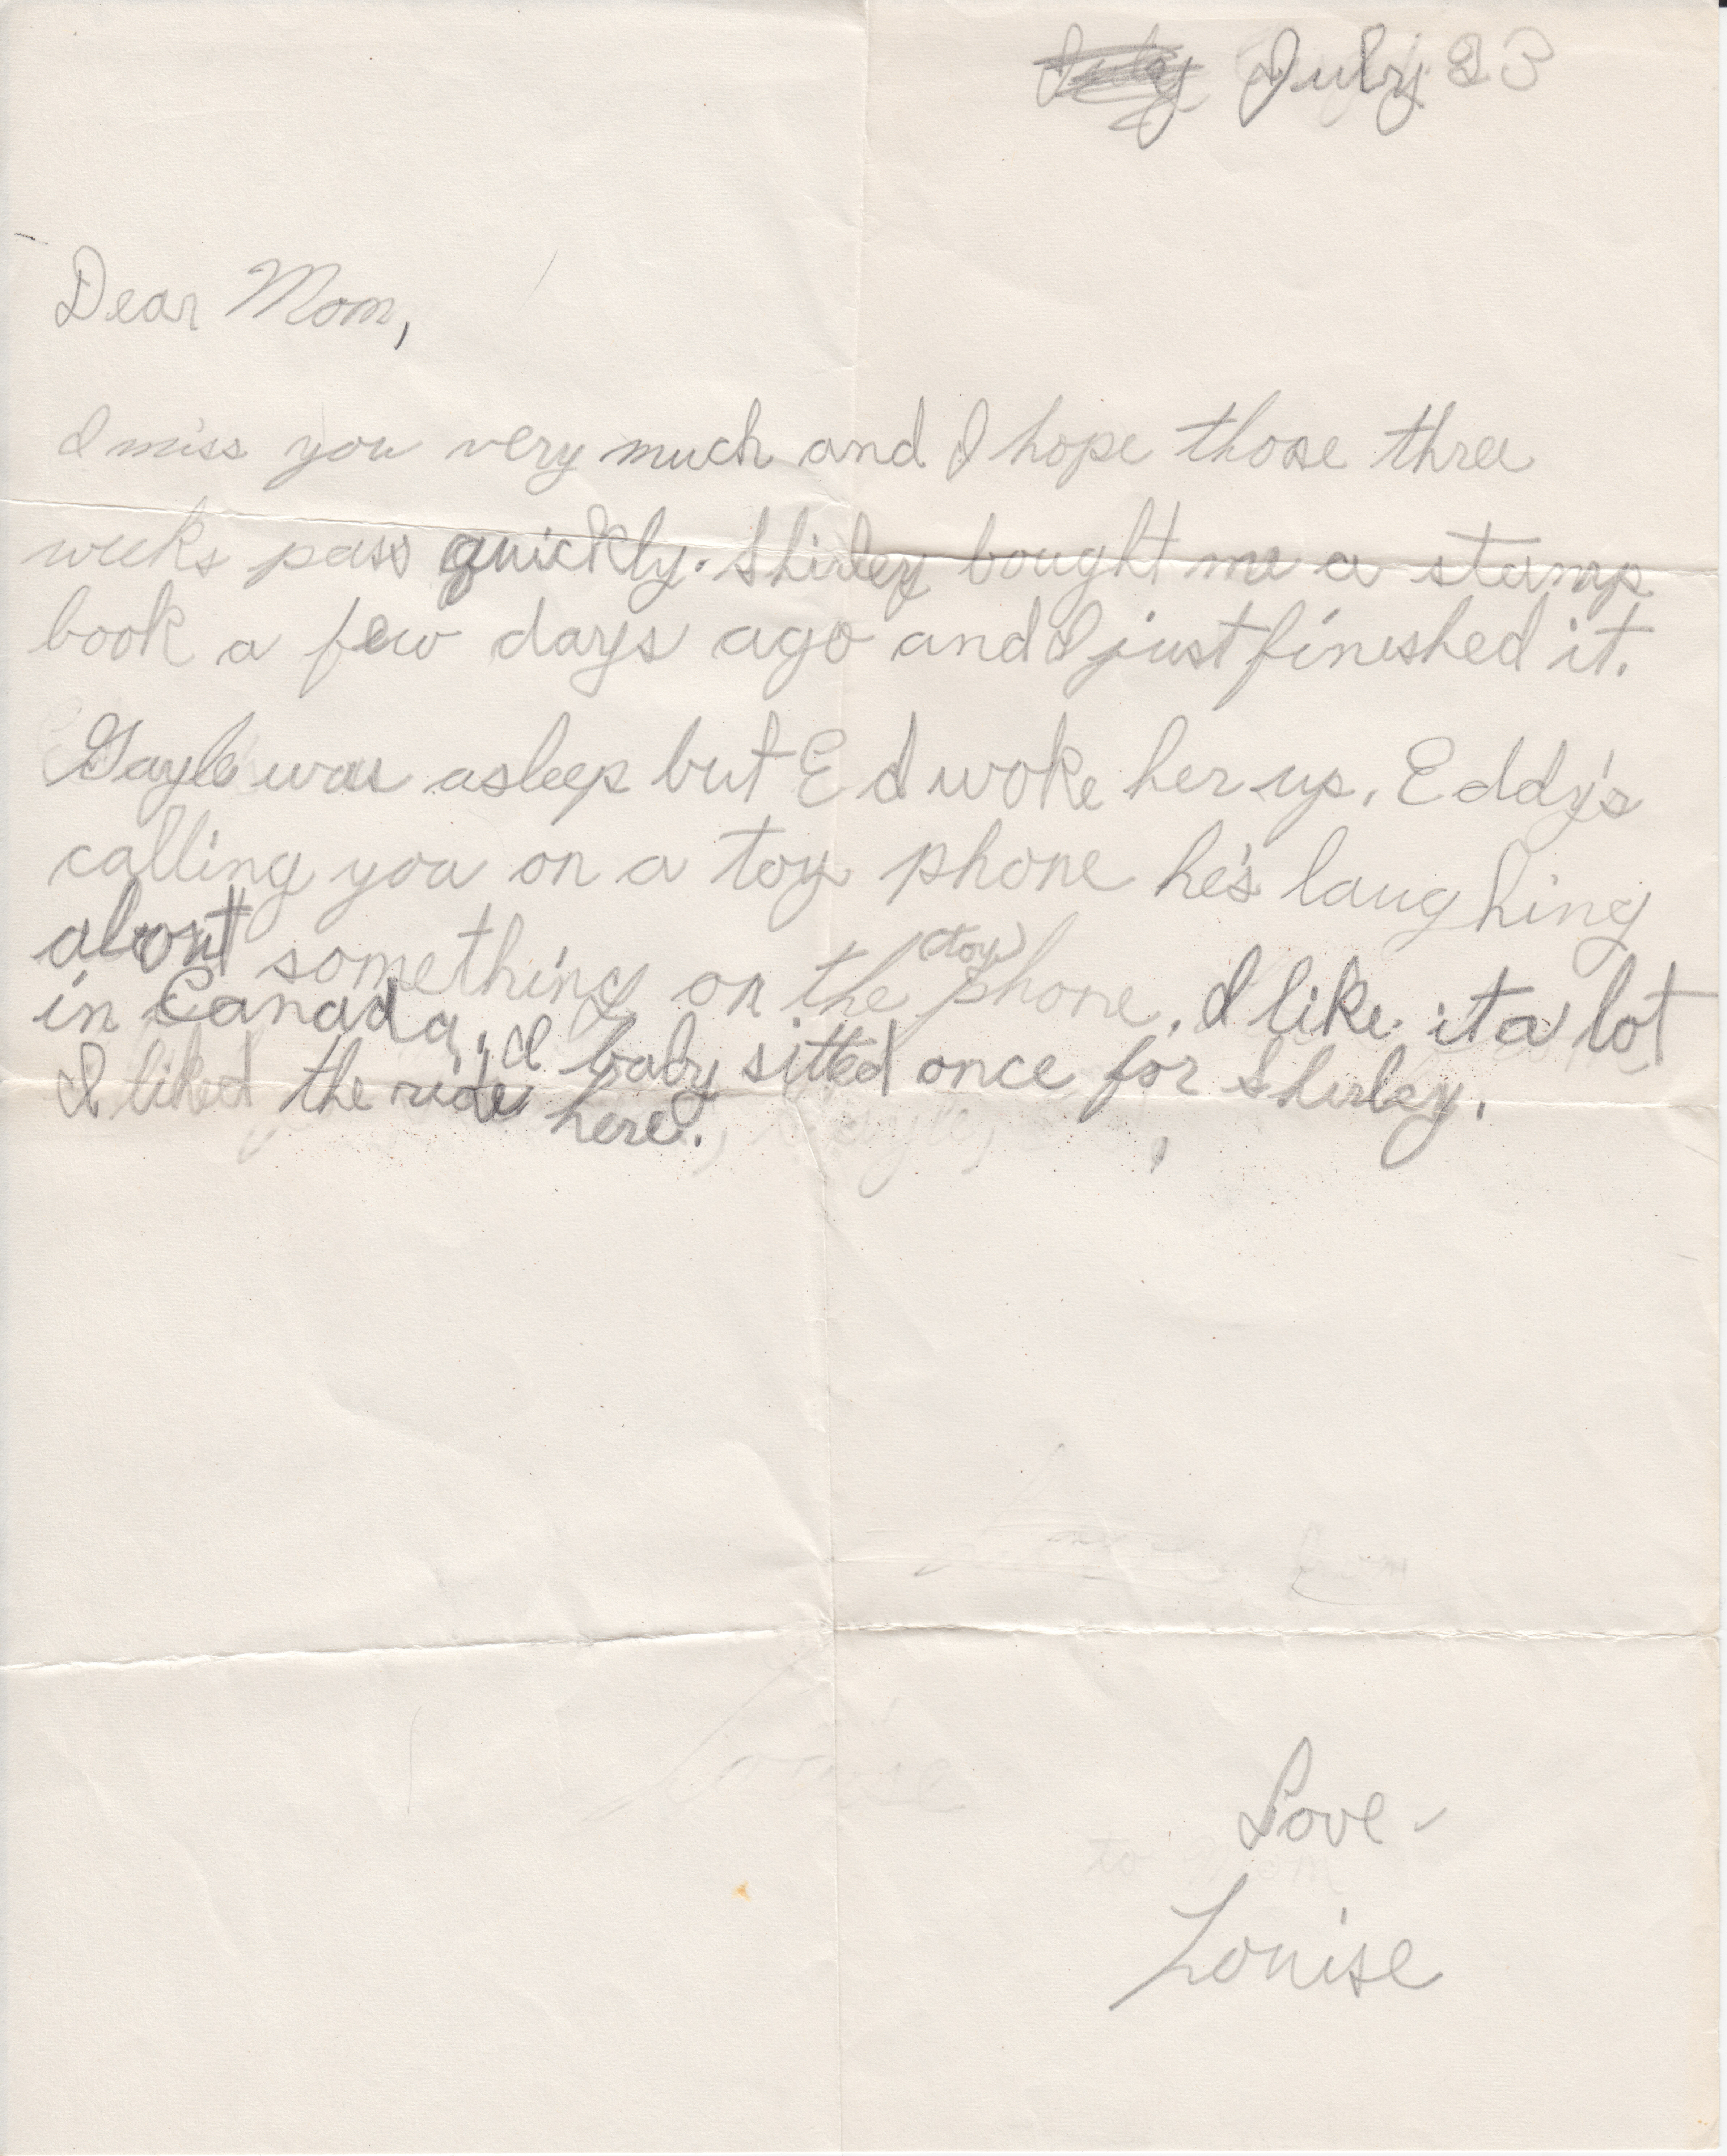 July July 23
Dear Mom,
I miss you very much and I hope those three
weeks pass quickly. Shirley bought me a stamp
book a few days ago and I just finished it.
Gayle was asleep but Ed woke her up. Eddy's
calling you on a toy phone he's laughing
about something on the (toy) phone. I like it a lot
in Canada. I baby sitted once for Shirley.
I liked the ride here.
Love -
to Mom
Louise